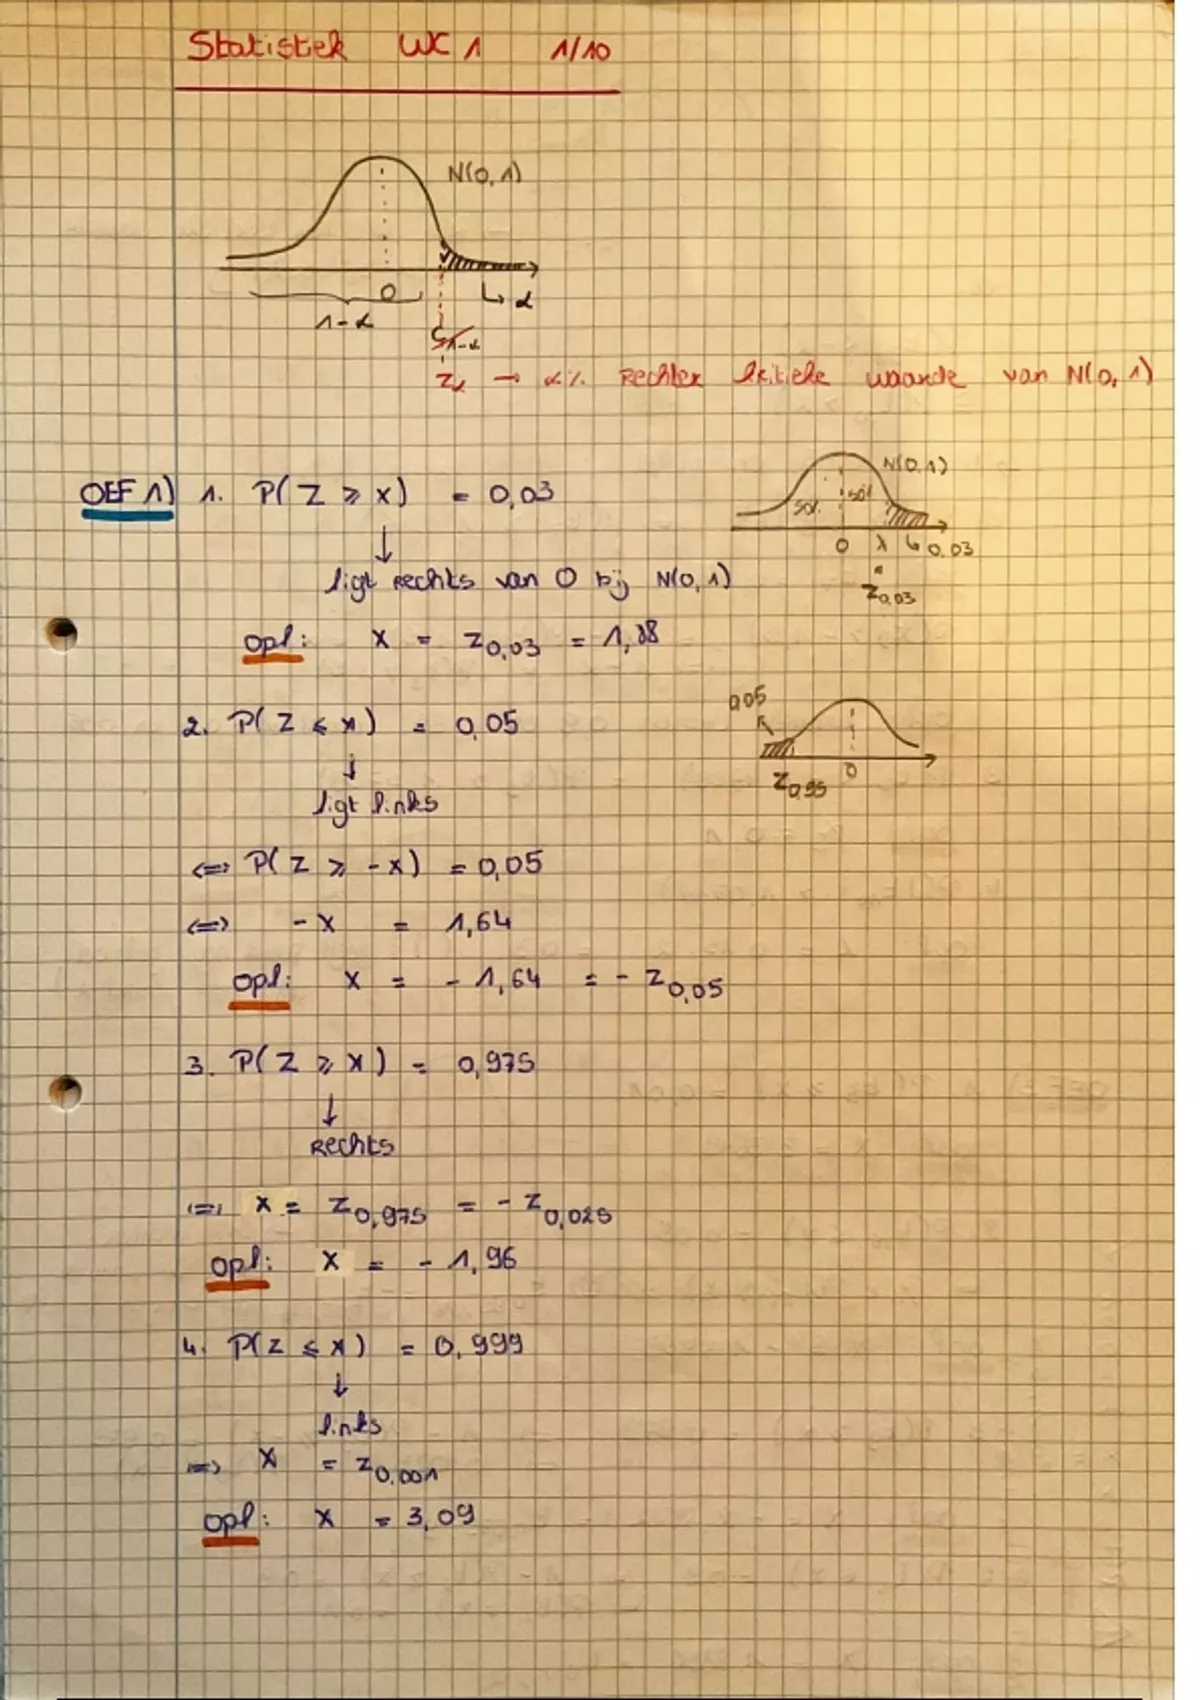 Statistiek WC 1 1/10
N(0,1)
0
1-α
↳ α
Zα → α% rechter kritieke waarde van N(0,1)
OEF 1) 1. P(Z ⩾ x) = 0,03
↓
ligt rechts van 0 bij N(0,1)
N(0,1)
50% 50%
0 x ↳ 0,03
=
Z0,03
opl: x = Z0,03 = 1,88
2. P(Z ⩽ x) = 0,05
↓
ligt links
0,05
Z0,95 0
<=> P(Z ⩾ -x) = 0,05
<=> -x = 1,64
opl: x = -1,64 = -Z0,05
3. P(Z ⩾ x) = 0,975
↓
Rechts
<=> x = Z0,975 = -Z0,025
opl: x = -1,96
4. P(Z ⩽ x) = 0,999
↓
links
=> x = Z0,001
opl: x = 3,09